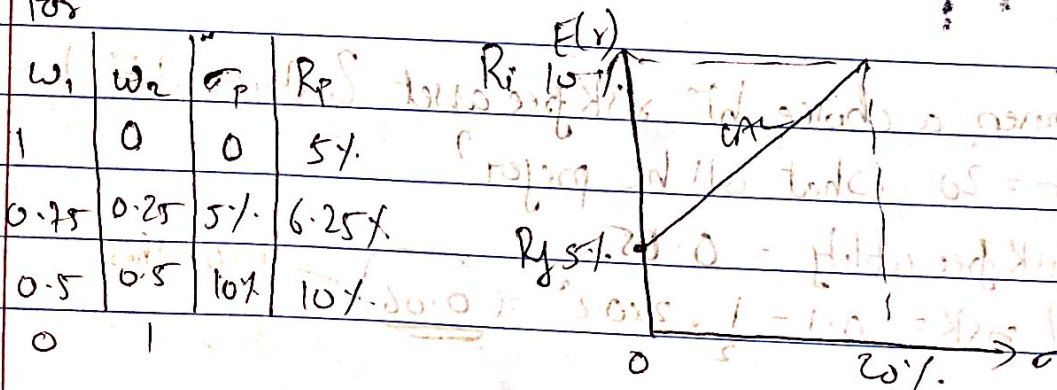 for
W₁ W₂ σp Rp
1 0 0 5%.
0.75 0.25 5%. 6.25%
0.5 0.5 10% 10%.
0 1
E(r)
Ri 10%.
CAL
Rf 5%.
0 20%. σ